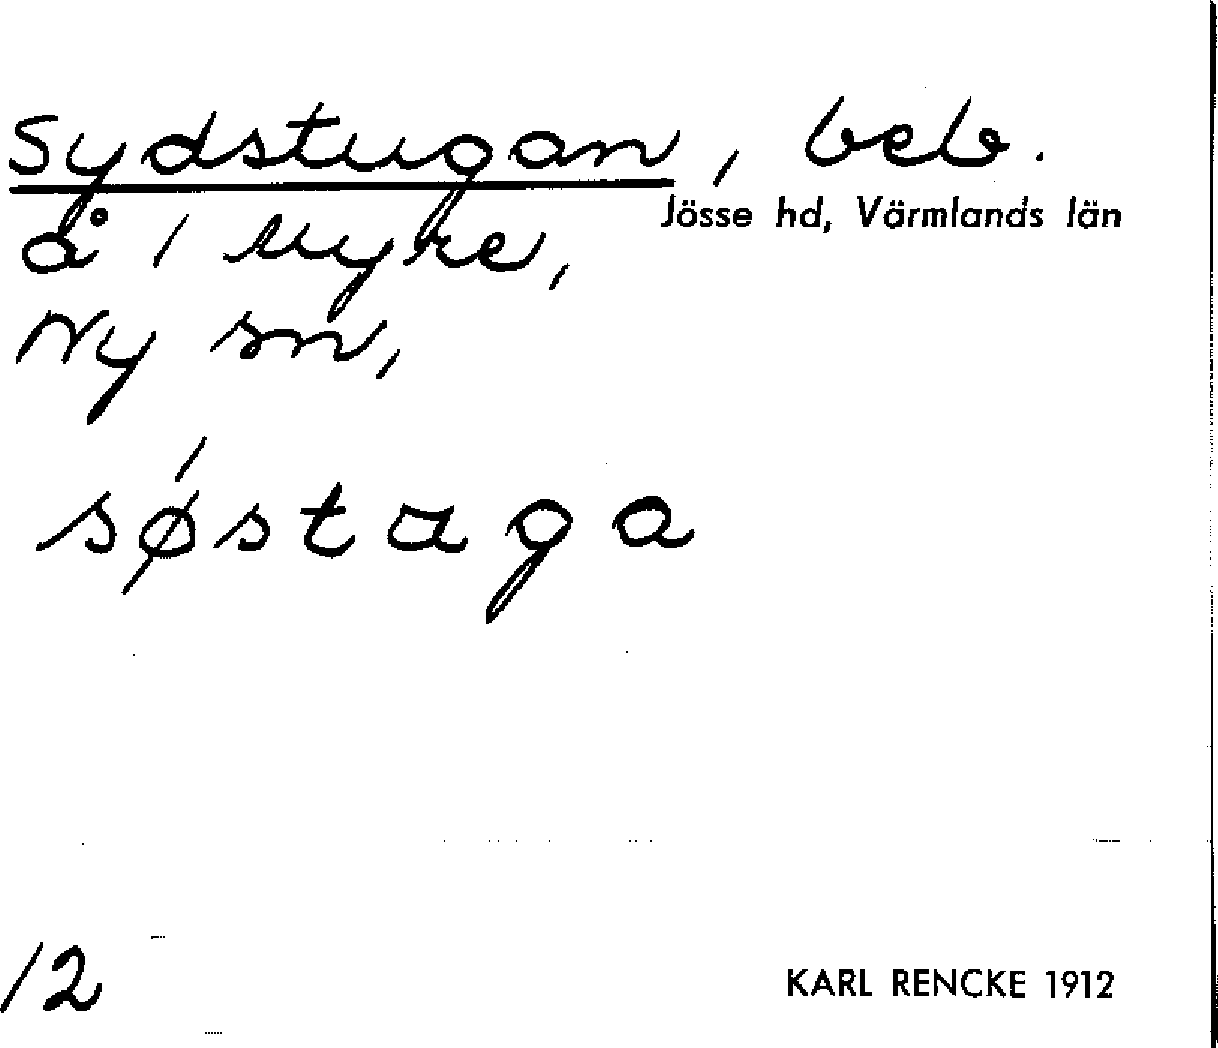 Sydstugan, beb.
Jösse hd, Värmlands län
å 1 Myre,
Ny sn,
sǿstaga
12
KARL RENCKE 1912